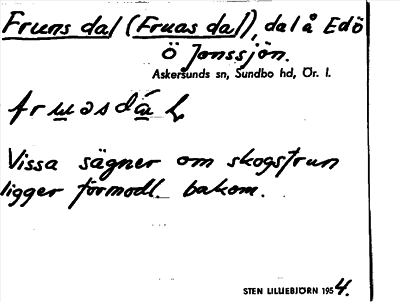 Fruns dal (Fruas dal), dal å Edö
Ö Jonssjön.
Askersunds sn, Sundbo hd, Ör. l.
Vissa sägner om skogsfrun
ligger förmodl. bakom.
STEN LILLIEBJÖRN 1954.